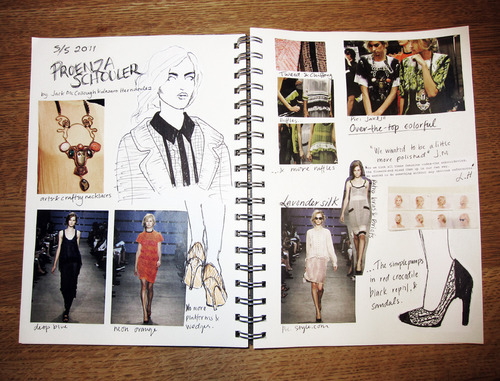 S/S 2011
PROENZA
SCHOULER
by Jack McCollough & Lazaro Hernandez
arts & craftsy necklaces
deep blue
neon orange
No more
platforms &
wedges.
Tweed & Craftsy
Ruffles
...& more ruffles
Pic: Jak&Jil
Over-the-top colorful
"We wanted to be a little
more polished" J.M
L.H
Lavender silk
Pic. style.com
...The simple pumps
in red crocodile
black reptil, &
sandals.